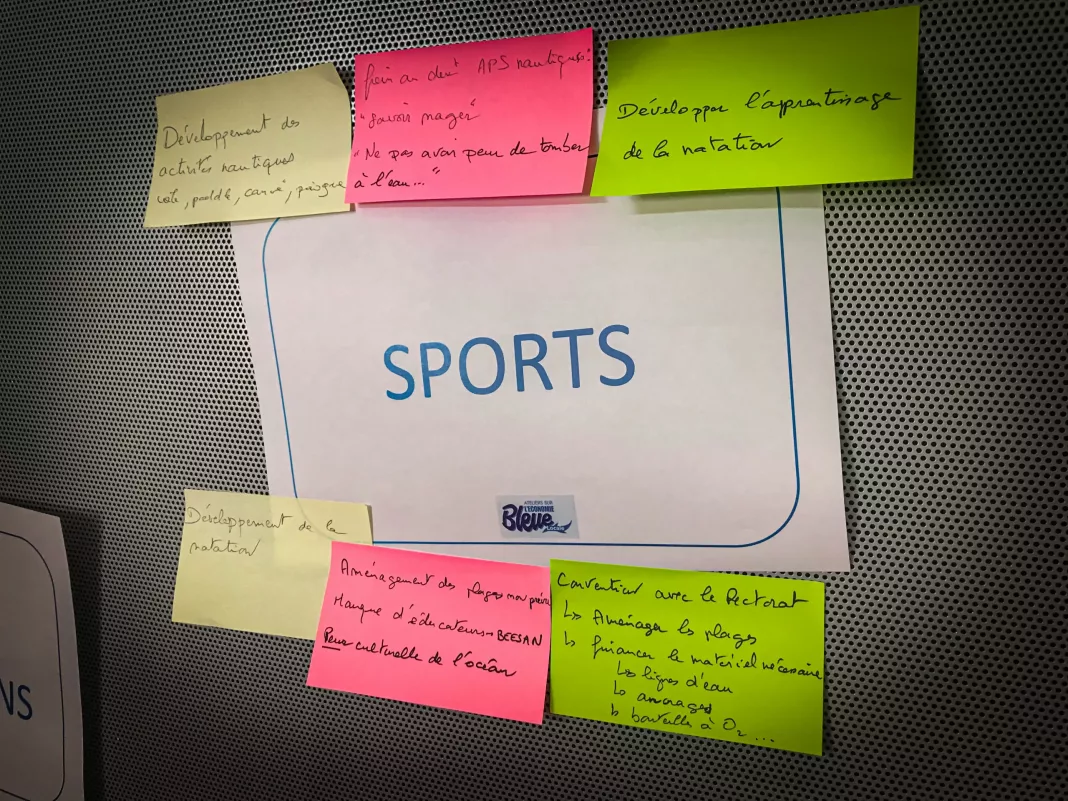 Développement des
activités nautiques
voile, paddle, canoë, pirogue
frein au devt APS nautiques:
"Savoir nager"
"Ne pas avoir peur de tomber
à l'eau..."
Développer l'apprentissage
de la natation
SPORTS
ATELIERS SUR
L'ÉCONOMIE
Bleue
LOCALE
Développement de la
natation
Aménagement des plages non prévu
Manque d'éducateurs BEESAN
Peur culturelle de l'océan
Convention avec le Rectorat
↳ Aménager les plages
↳ financer le matériel nécessaire
↳ lignes d'eau
↳ ancrages
↳ bouteille à O2 ...
NS